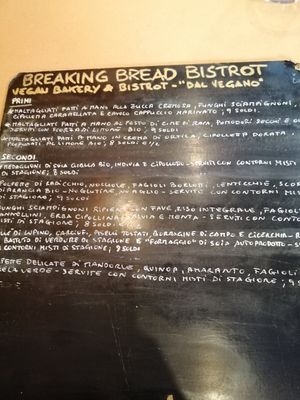 BREAKING BREAD BISTROT
VEGAN BAKERY & BISTROT - "DAL VEGANO"
PRIMI
MALTAGLIATI FATTI A MANO ALLA ZUCCA CREMOSA, FUNGHI SCIAMPIGNONI,
CIPOLLA CARAMELLATA E CAVOLO CAPPUCCIO MARINATO; 9 SOLDI.
MALTAGLIATI FATTI A MANO AL PESTO DI CIME DI RAPA, POMODORI SECCHI E
SERVITI CON SCORZA DI LIMONE BIO; 9 SOLDI
MALTAGLIATI FATTI A MANO IN CREMA DI ORTICA, CIPOLLETTA DORATA,
AL LIMONE BIO; 8 SOLDI E 1/2
SECONDI
MEDAGLIONI DI SOIA GIALLA BIO, INDIVIA E CIPOLLOTTO - SERVITI CON CONTORNI MISTI
DI STAGIONE; 8 SOLDI
POLPETTE DI RADICCHIO, NOCCIOLE, FAGIOLI BORLOTTI, LENTICCHIE, SCORZA
DI ARANCIA BIO - NO GLUTINE, NO AGLIO - SERVITI CON CONTORNI MISTI
DI STAGIONE; 9 SOLDI
FUNGHI SCIAMPIGNONI RIPIENI CON FAVE, RISO INTEGRALE, FAGIOLI
CANNELLINI, ERBA CIPOLLINA, SALVIA E MENTA - SERVITI CON CONTORNI
MISTI DI STAGIONE; 8 SOLDI E
DI LUPINO, CARCIOFI, PISELLI TOSTATI, BORRAGINE DI CAMPO E CICERCHIA -
DI VERDURE DI STAGIONE E "FORMAGGIO" DI SOIA AUTOPRODOTTO -
CONTORNI MISTI DI STAGIONE; 9 SOLDI
DELICATE DI MANDORLE, QUINOA, AMARANTO, FAGIOLI
VERDE - SERVITE CON CONTORNI MISTI DI STAGIONE; 9